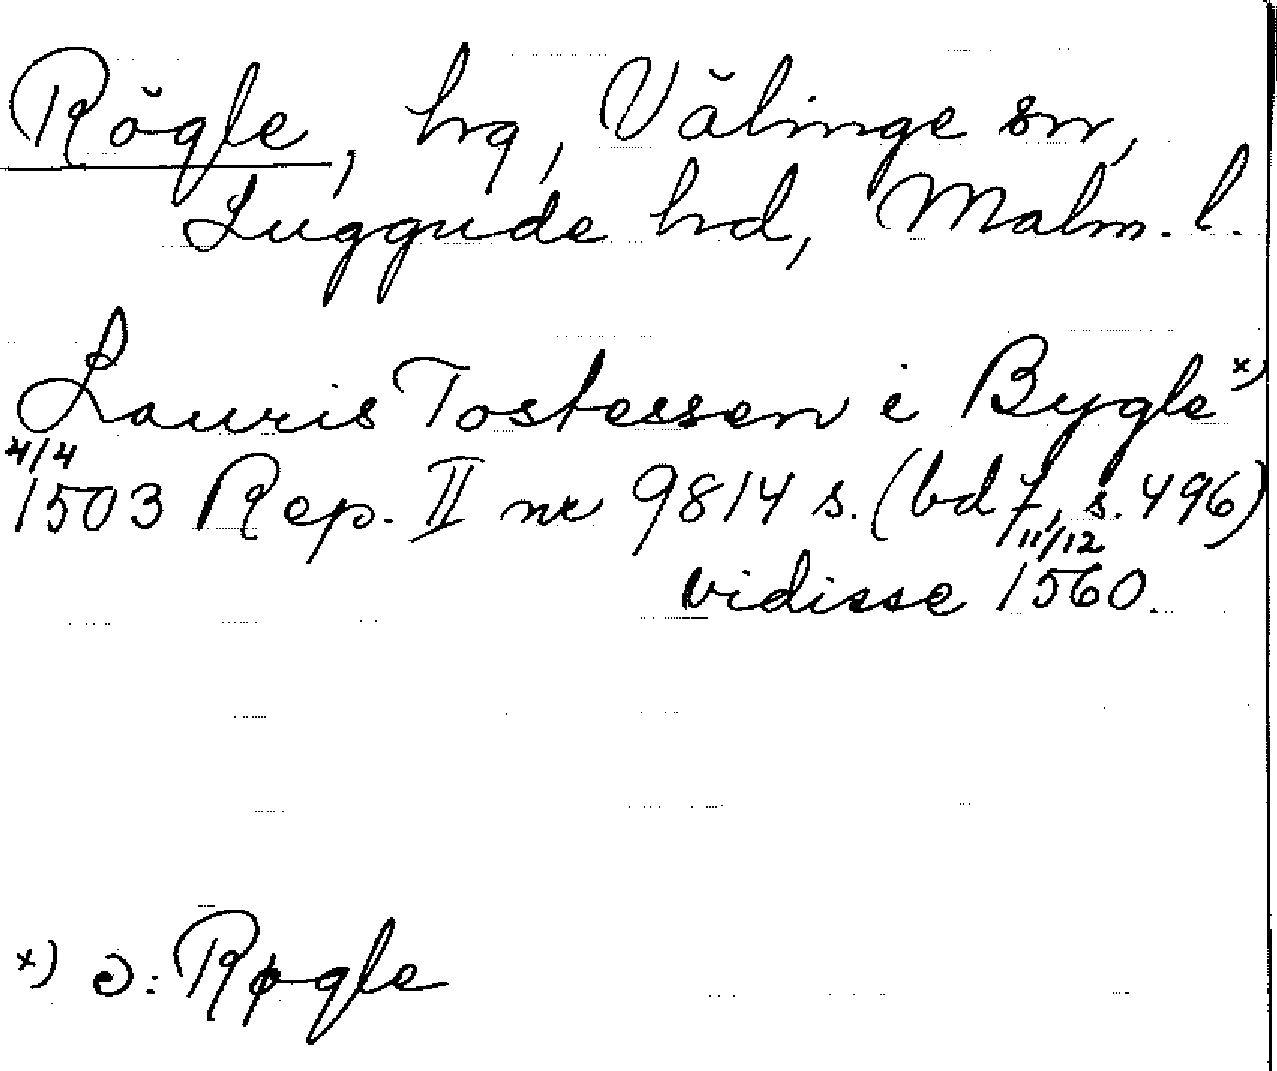 Rögle, hg, Välinge sn,
Luggude hd, Malm. l.
Lauris Tostessen i Bygle x)
4/4
1503 Rep. II nr 9814 s. (bd 7, s. 496)
11/12
vidisse 1560.
x) ɔ: Røgle